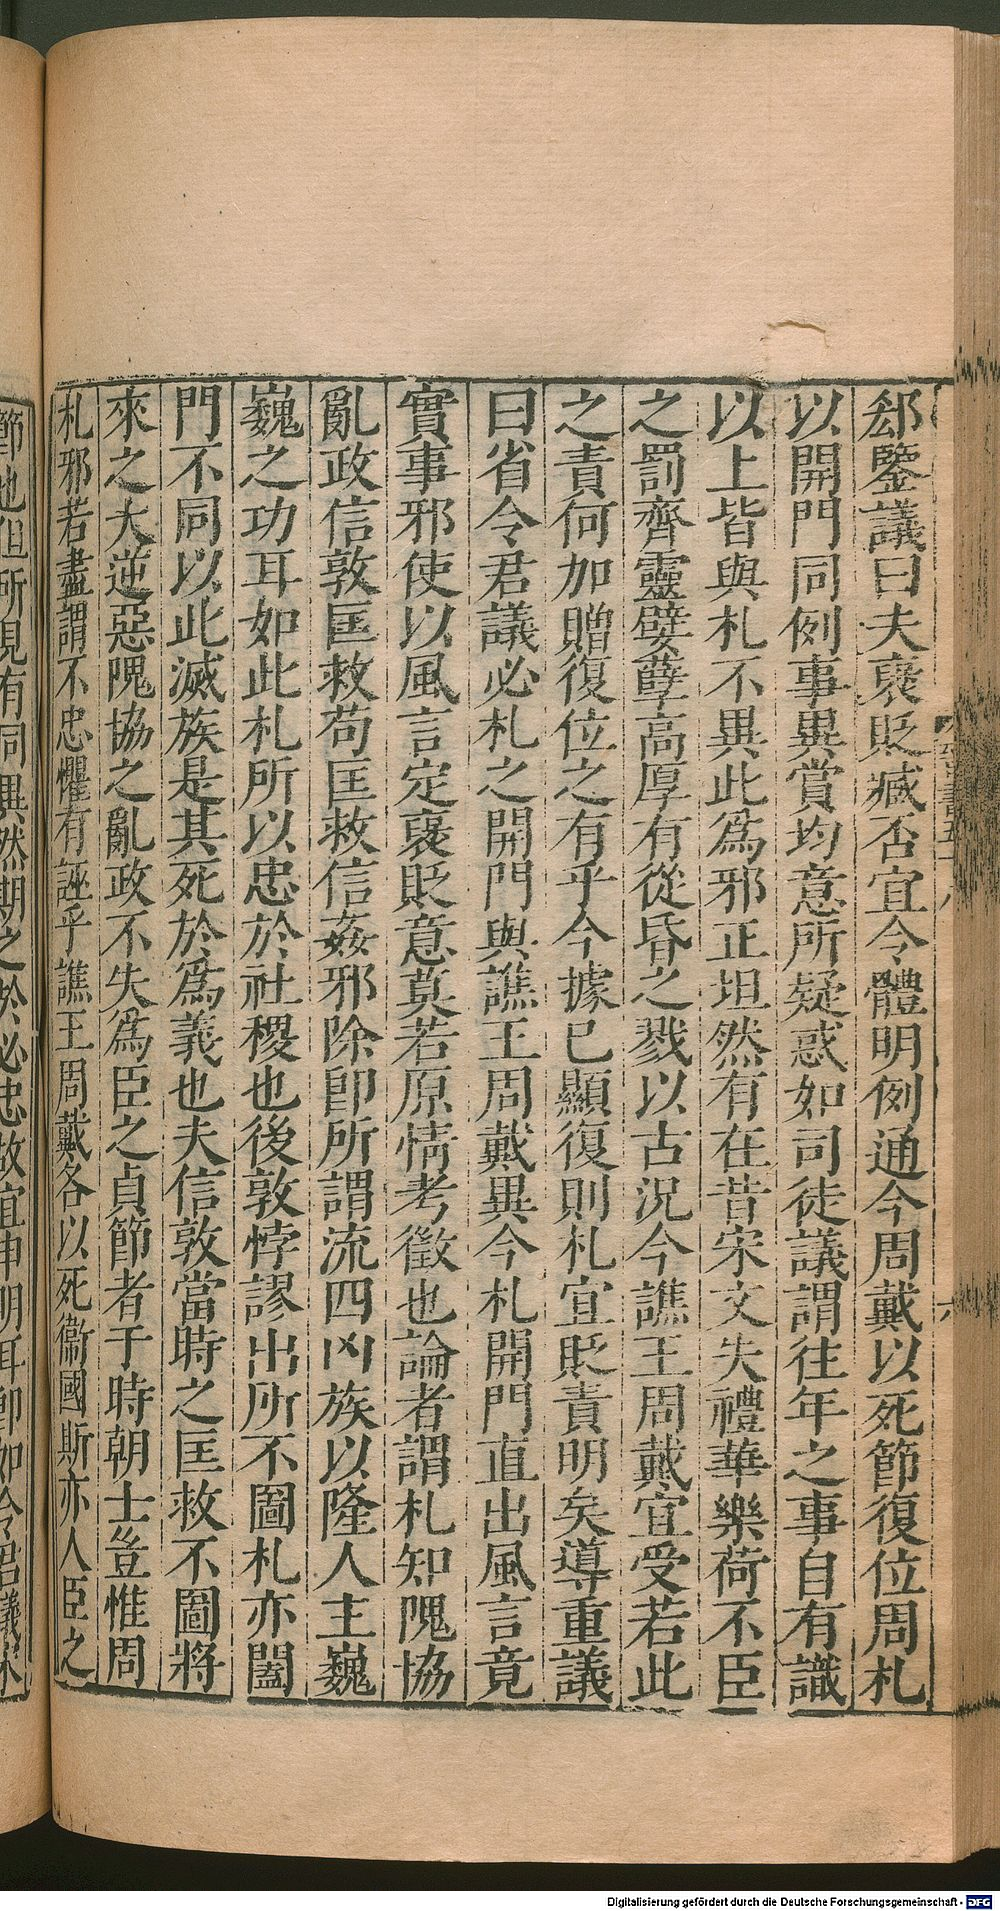 郄鑒議曰夫襃貶臧否宜令體明例通今周戴以死節復位周札
以開門同例事異賞均意所疑惑如司徒議謂往年之事自有識
以上皆與札不異此為邪正坦然有在昔宋文失禮華樂荷不臣
之罰齊靈嬖孽高厚有從昏之戮以古況今譙王周戴宜受若此
之責何加贈復位之有乎今據已顯復則札宜貶責明矣導重議
曰省令君議必札之開門與譙王周戴異今札開門直出風言竟
實事邪使以風言定襃貶意莫若原情考徵也論者謂札知隗協
亂政信敦匡救苟匡救信姦邪除即所謂流四凶族以隆人主巍
巍之功耳如此札所以忠於社稷也後敦悖謬出所不圖札亦闔
門不同以此滅族是其死於為義也夫信敦當時之匡救不圖將
來之大逆惡隗協之亂政不失為臣之貞節者于時朝士豈惟周
札邪若盡謂不忠懼有誣乎譙王周戴各以死衞國斯亦人臣之
節也但所見有同異然期之於必忠故宜申明耳即如令君議宋
Digitalisierung gefördert durch die Deutsche Forschungsgemeinschaft - DFG